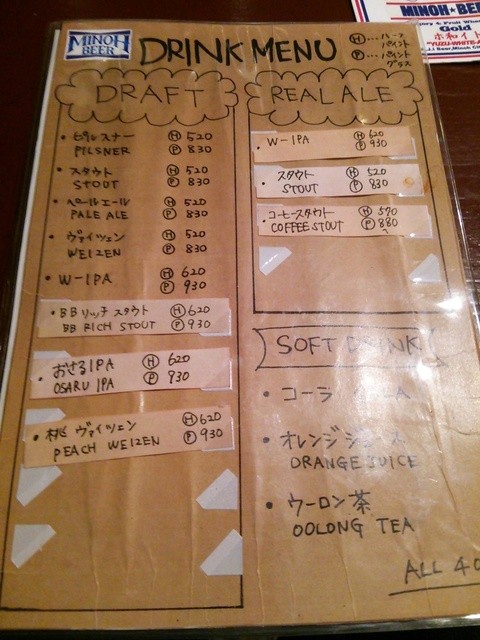 MINOH BEER
DRINK MENU
Ⓗ...ハーフ
パイント
Ⓟ...パイント
グラス
DRAFT
・ピルスナー Ⓗ 520
PILSNER Ⓟ 830
・スタウト Ⓗ 520
STOUT Ⓟ 830
・ペールエール Ⓗ 520
PALE ALE Ⓟ 830
・ヴァイツェン Ⓗ 520
WEIZEN Ⓟ 830
・W-IPA Ⓗ 620
Ⓟ 930
・BBリッチ スタウト Ⓗ 620
BB RICH STOUT Ⓟ 930
・おさるIPA Ⓗ 620
OSARU IPA Ⓟ 930
・桃 ヴァイツェン Ⓗ 620
PEACH WEIZEN Ⓟ 930
REAL ALE
W-IPA Ⓗ 620
Ⓟ 930
スタウト Ⓗ 520
STOUT Ⓟ 830
コーヒースタウト Ⓗ 570
COFFEE STOUT Ⓟ 880
SOFT DRINK
・コーラ
・オレンジジュース
ORANGE JUICE
・ウーロン茶
OOLONG TEA
ALL 40
MINOH★BEE
Gold
ホ和イト
"YUZU-WHITE-A